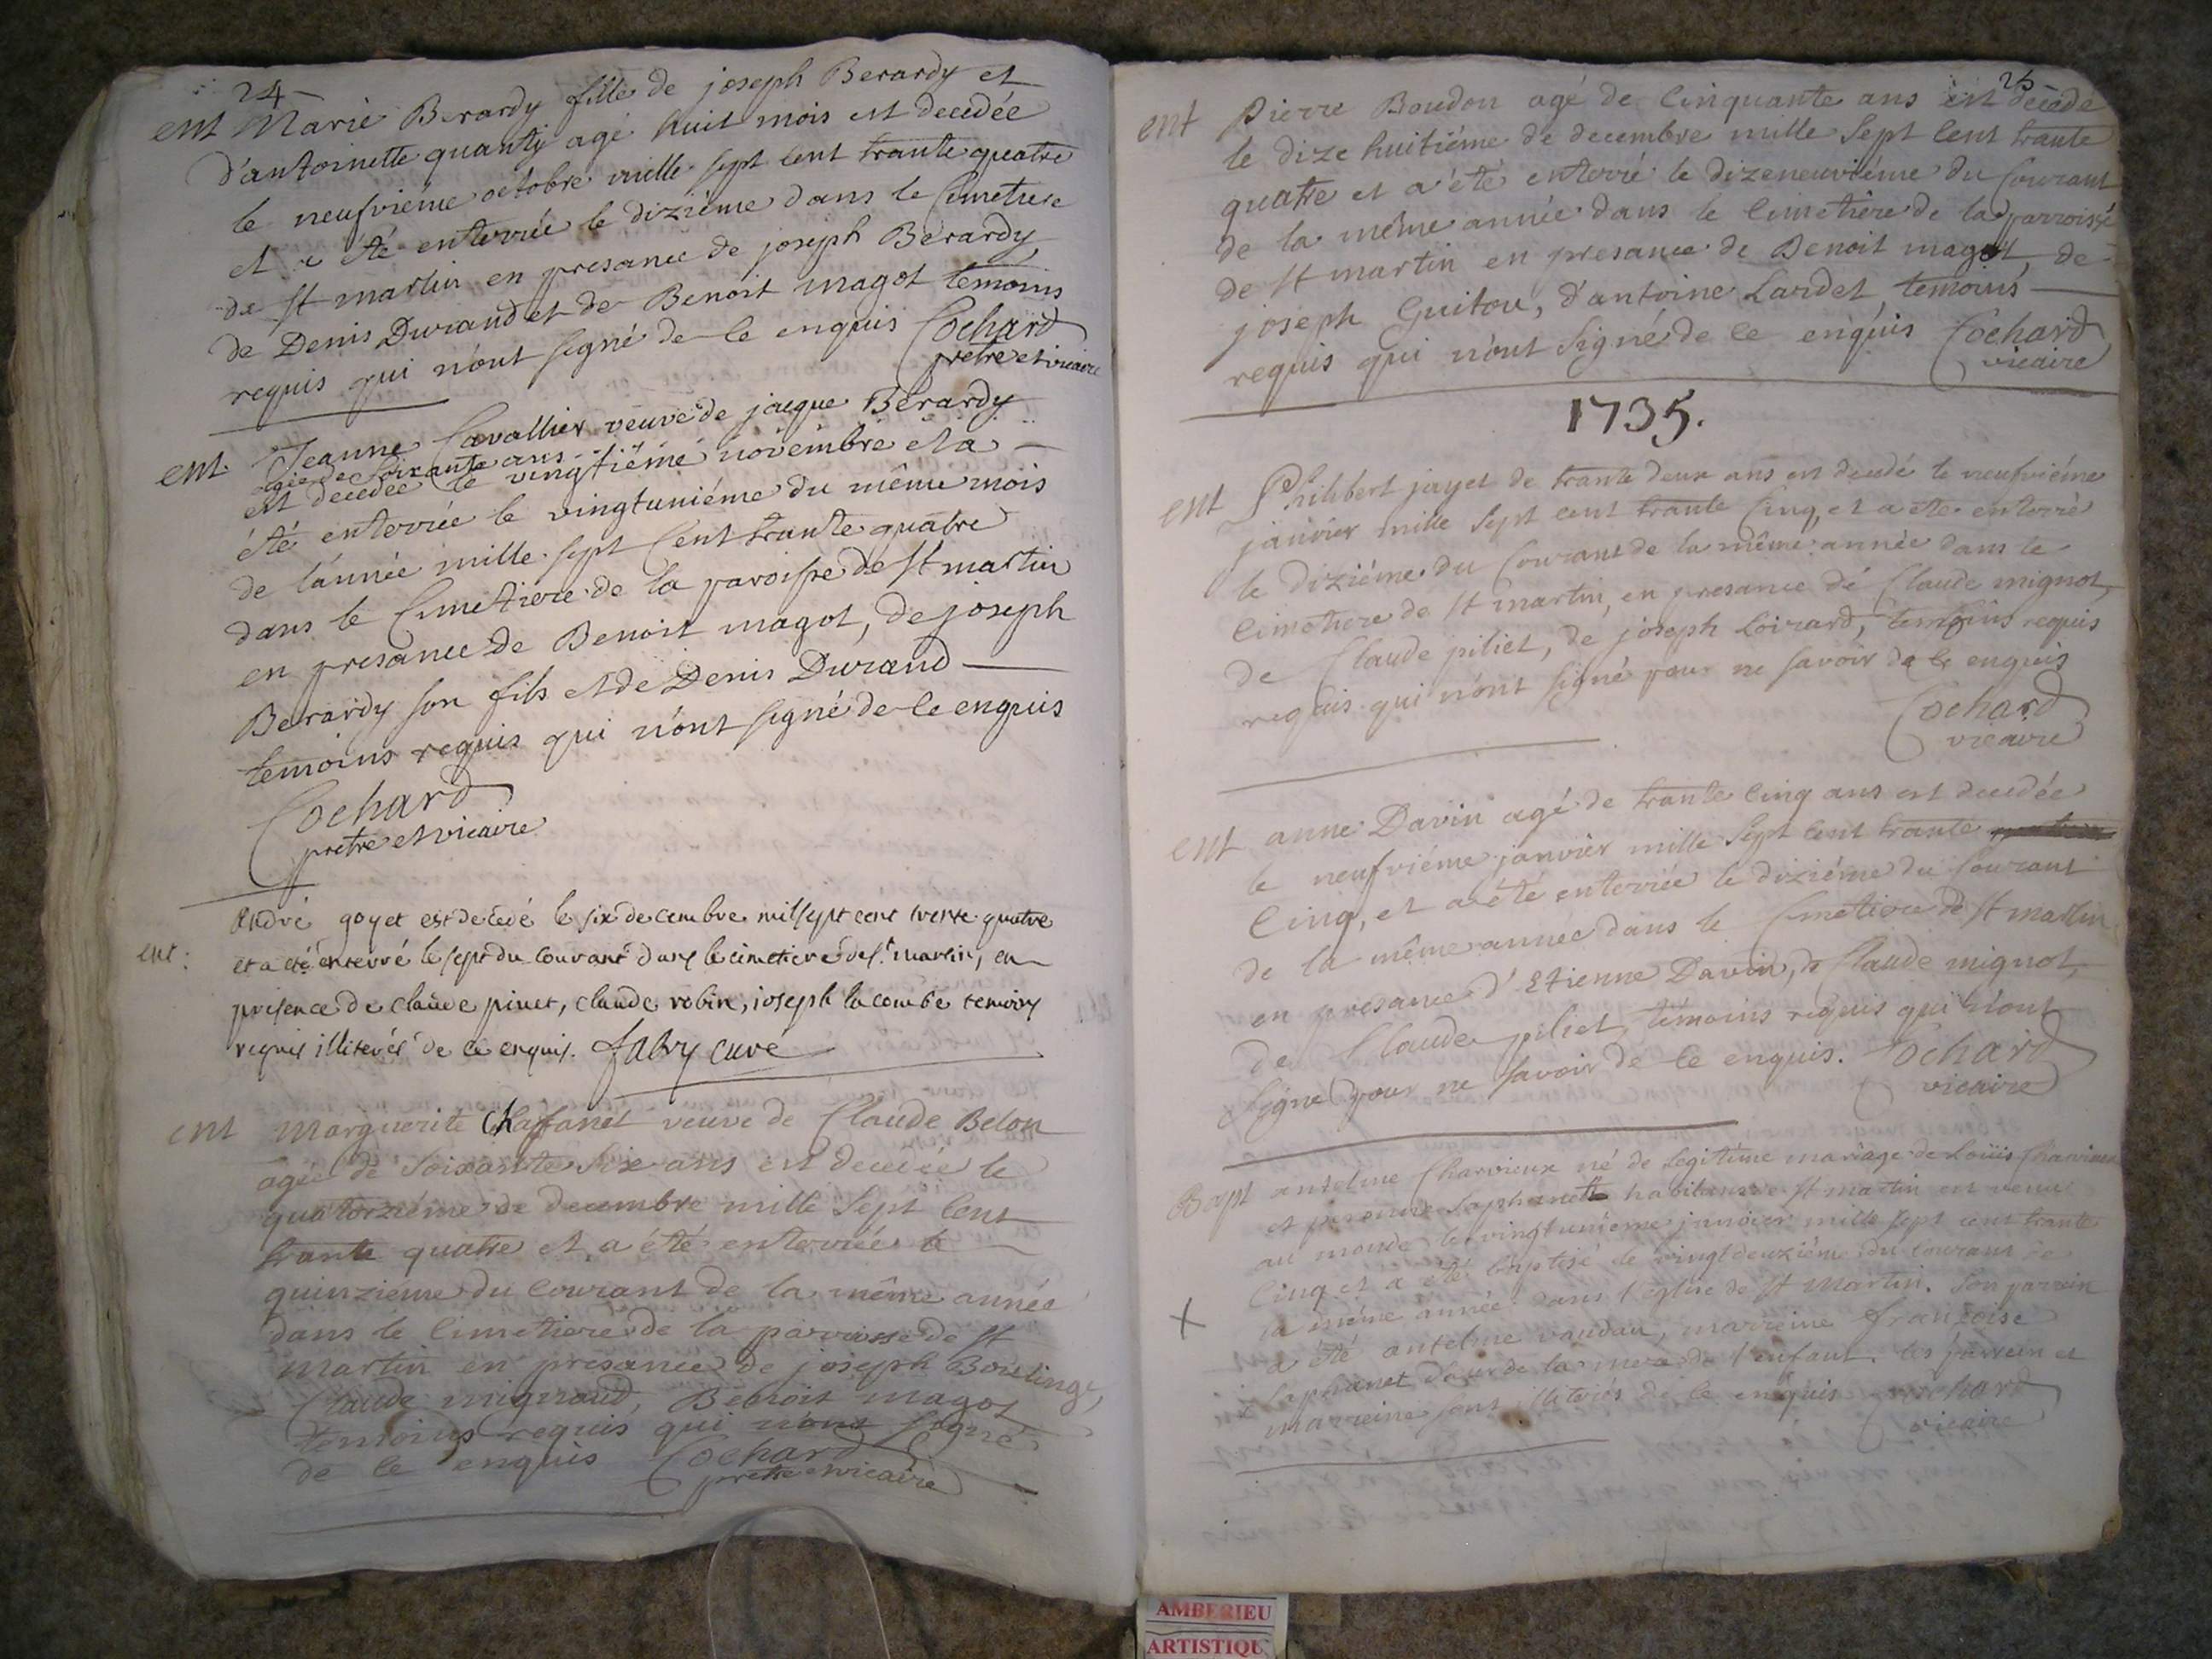 24
ent Marie Berardy fille de joseph Berardy et
d'antoinette quanty agé huit mois est decedée
le neufviéme octobre mille sept cent trante quatre
et a été enterrée le dizième dans le Cimetiere
de St martin en presance de joseph Berardy
de Denis Durand et de Benoit magot temoins
requis qui n'ont signé de ce enquis Cochard
pretre et vicaire
ent. Jeanne Cavallier veuve de jacque Berardy
agée de soixante ans
est decedée le vingtiéme novembre et a
été enterrée le vingtuniéme du même mois
de l'année mille sept Cent trante quatre
dans le Cimetiere de la paroisse de St martin
en presance de Benoit magot, de joseph
Berardy son fils et de Denis Durand
temoins requis qui n'ont signé de ce enquis
Cochard
pretre et vicaire
André goyet est decedé le six decembre mil sept cent trente quatre
ent: et a été enterré le sept du courant dans le cimetiere de st. martin, en
presence de claude pinet, claude robin, joseph lacombe temoins
requis illiterés de ce enquis. fabry curé
ent Marguerite Chaffanet veuve de Claude Belon
agée de soixante six ans est decedée le
quatorziéme de decembre mille sept Cent
trante quatre et a été enterrée le
quinziéme du Courant de la même année
dans le Cimetiere de la parroisse de St
Martin en presance de joseph Boulinge,
Claude mignaud, Benoit magot
temoins requis qui n'ont signé
de ce enquis Cochard
pretre et vicaire
25
ent Pierre Boudon agé de Cinquante ans est decedé
le dize huitiéme de decembre mille sept Cent trante
quatre et a été enterré le dizeneuviéme du Courant
de la même année dans le Cimetière de la parroisse
de St martin en presance de Benoit magot, de
joseph Guitou, d'antoine Lardet, temoins
requis qui n'ont signé de ce enquis Cochard
vicaire
1735.
ent Philibert jayet de trante deux ans est decedé le neufviéme
janvier mille sept cent trante Cinq, et a été enterré
le diziéme du Courant de la même année dans le
Cimetiere de St martin, en presance de Claude mignot,
de Claude piliet, de joseph Loirard, temoins requis
requis qui n'ont signé pour ne savoir de ce enquis
Cochard
vicaire
ent anne Davin agé de trante Cinq ans est decedée
le neufviéme janvier mille sept Cent trante
Cinq, et a été enterrée le diziéme du Courant
de la même année dans le Cimetiere de St martin
en presance d'Etienne Davin, de Claude mignot,
de Claude piliet, témoins requis qui n'ont
signé pour ne savoir de ce enquis. Cochard
vicaire
Bapt antelme Charvieux né de legitime mariage de Loüis Charvieux
et Saphanette habitans St martin est venu
au monde le vingtuniéme janvier mille sept cent trante
Cinq et a été baptisé le vingtdeuziéme du courant de
la même année dans l'eglise de St Martin. Son parrein
a été antelme vaudan, marreine françoise
Saphanet sœur de la mere de l'enfant. les parrein et
marreine sont illiterés de ce enquis Cochard
vicaire
X
AMBERIEU
ARTISTIQU